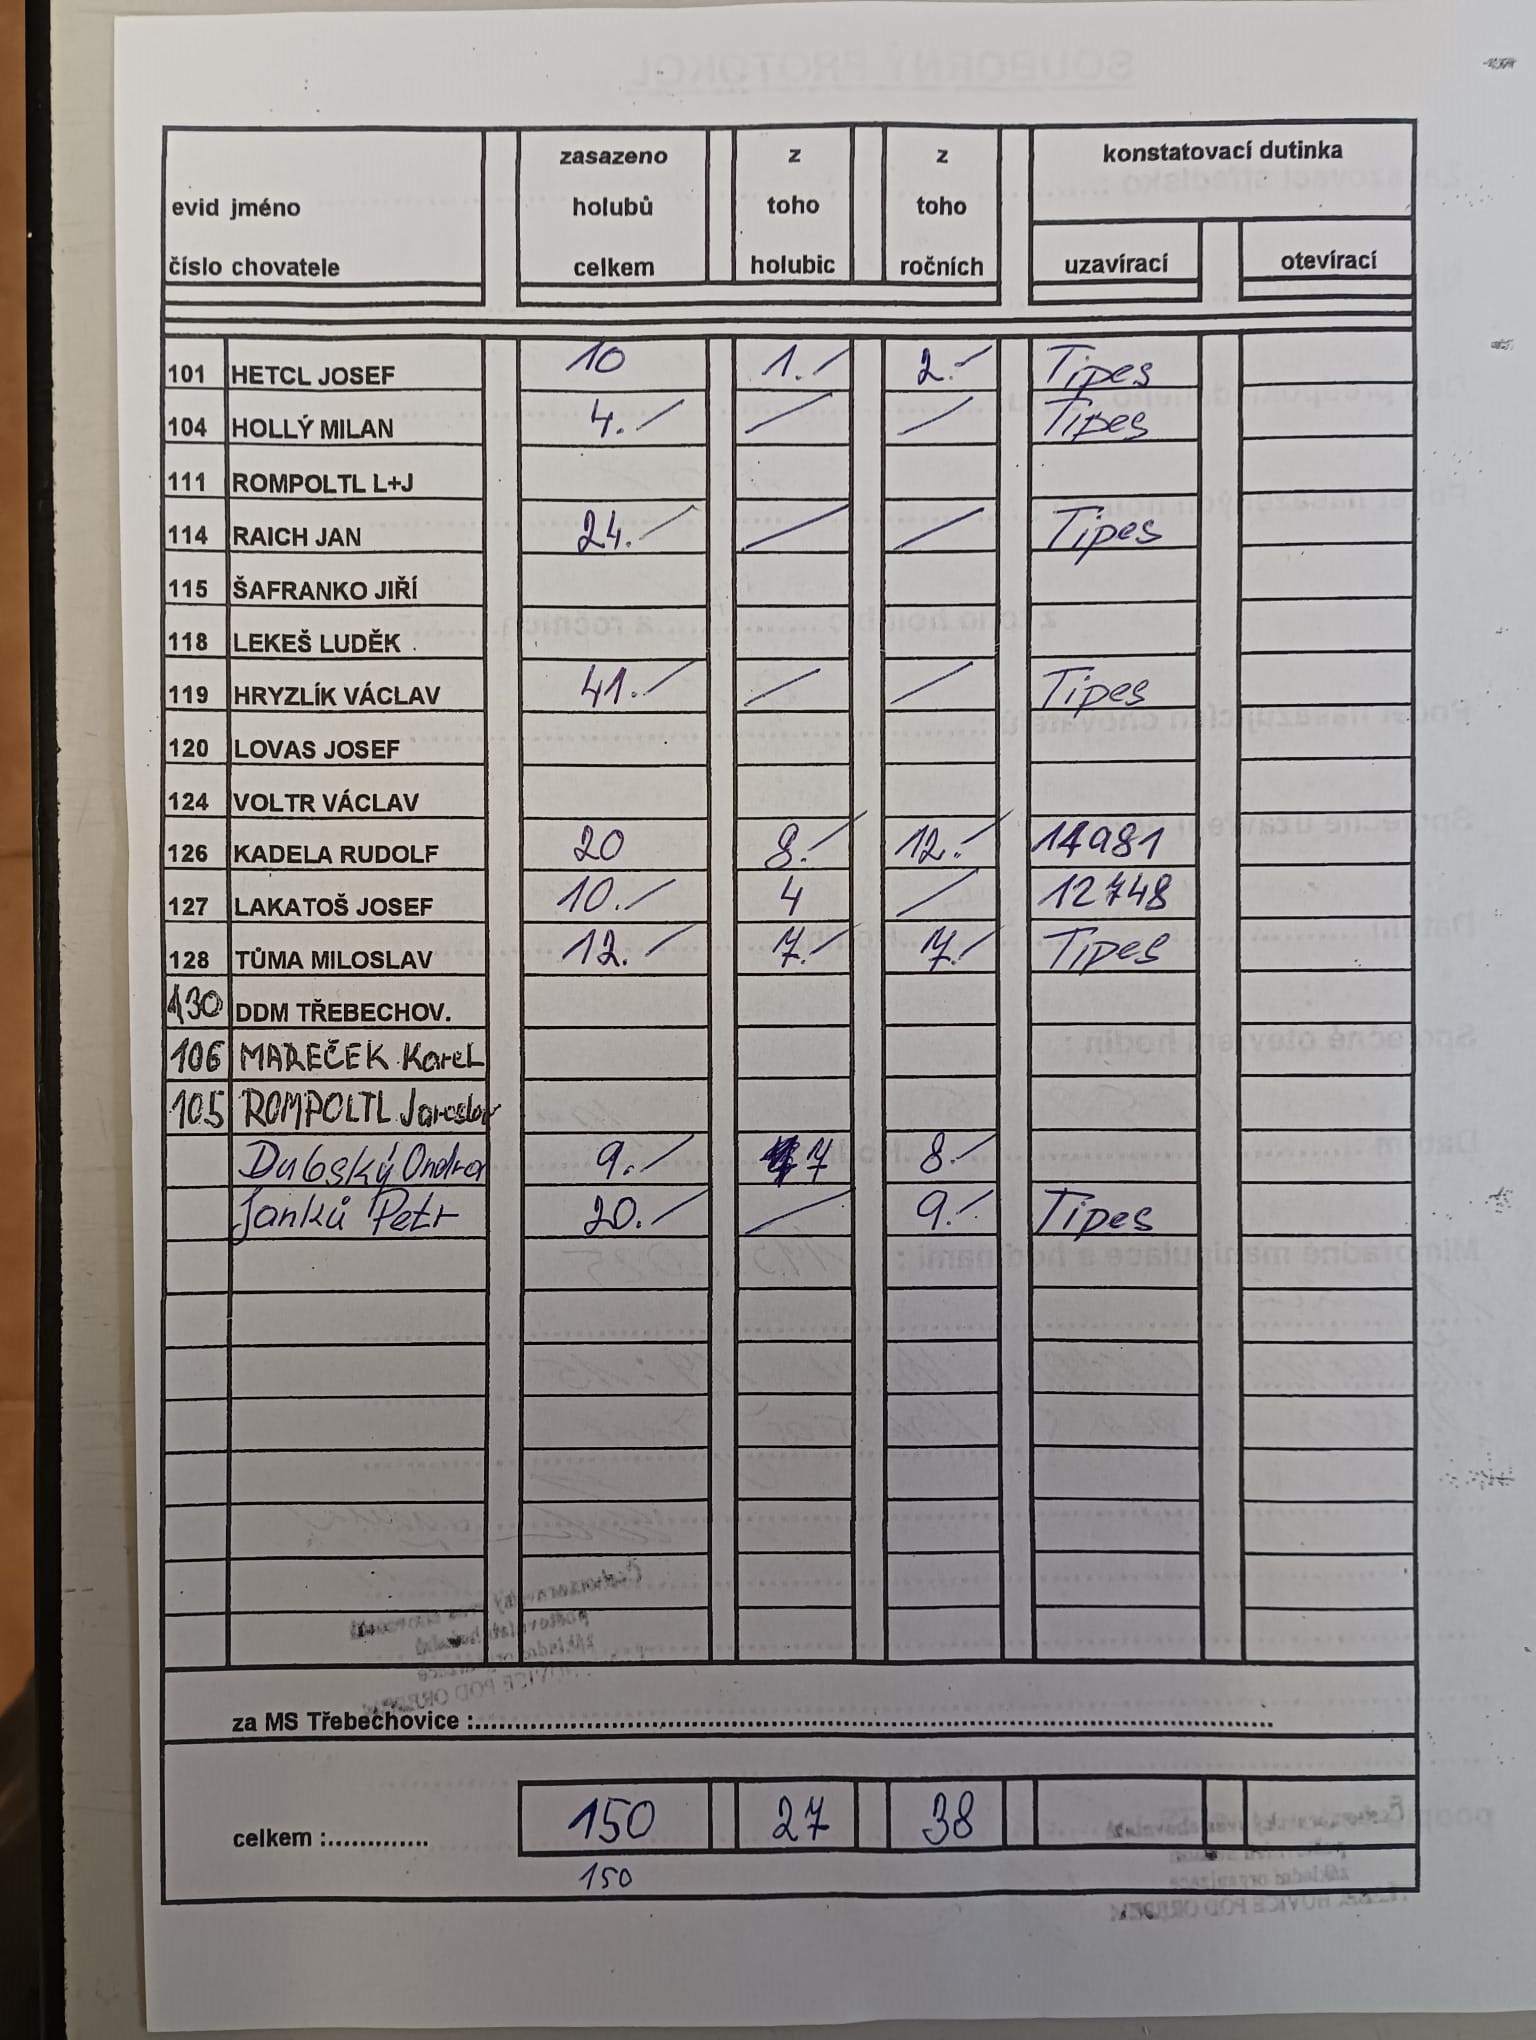 zasazeno z z konstatovací dutinka
evid jméno holubů toho toho
číslo chovatele celkem holubic ročních uzavírací otevírací
101 HETCL JOSEF 10 1.- 2.- Tipes
104 HOLLÝ MILAN 4.- / / Tipes
111 ROMPOLTL L+J
114 RAICH JAN 24.- / / Tipes
115 ŠAFRANKO JIŘÍ
118 LEKEŠ LUDĚK
119 HRYZLÍK VÁCLAV 41.- / / Tipes
120 LOVAS JOSEF
124 VOLTR VÁCLAV
126 KADELA RUDOLF 20 8.- 12.- 14981
127 LAKATOŠ JOSEF 10.- 4 / 12748
128 TŮMA MILOSLAV 12.- 7.- 7.- Tipes
130 DDM TŘEBECHOV.
106 MAREČEK Karel
105 ROMPOLTL Jaroslav
Dubský Ondra 9.- 7 8.-
Janků Petr 20.- / 9.- Tipes
za MS Třebechovice :..........
celkem :............. 150 27 38
150